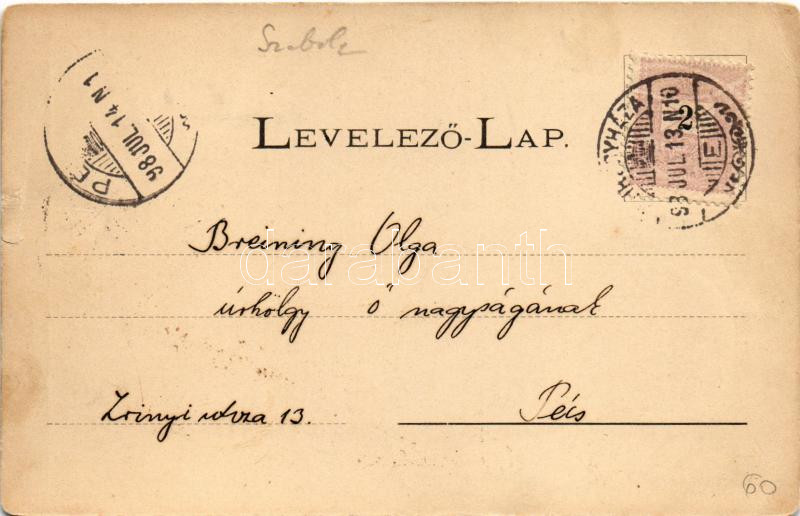 Szabolc
LEVELEZŐ-LAP.
2
98 JUL. 14 N 1
98 JUL. 13 N 10
E
Breining Olga
úrhölgy Ő nagyságának
Zrinyi utcza 13.
Pécs
60
darabanth